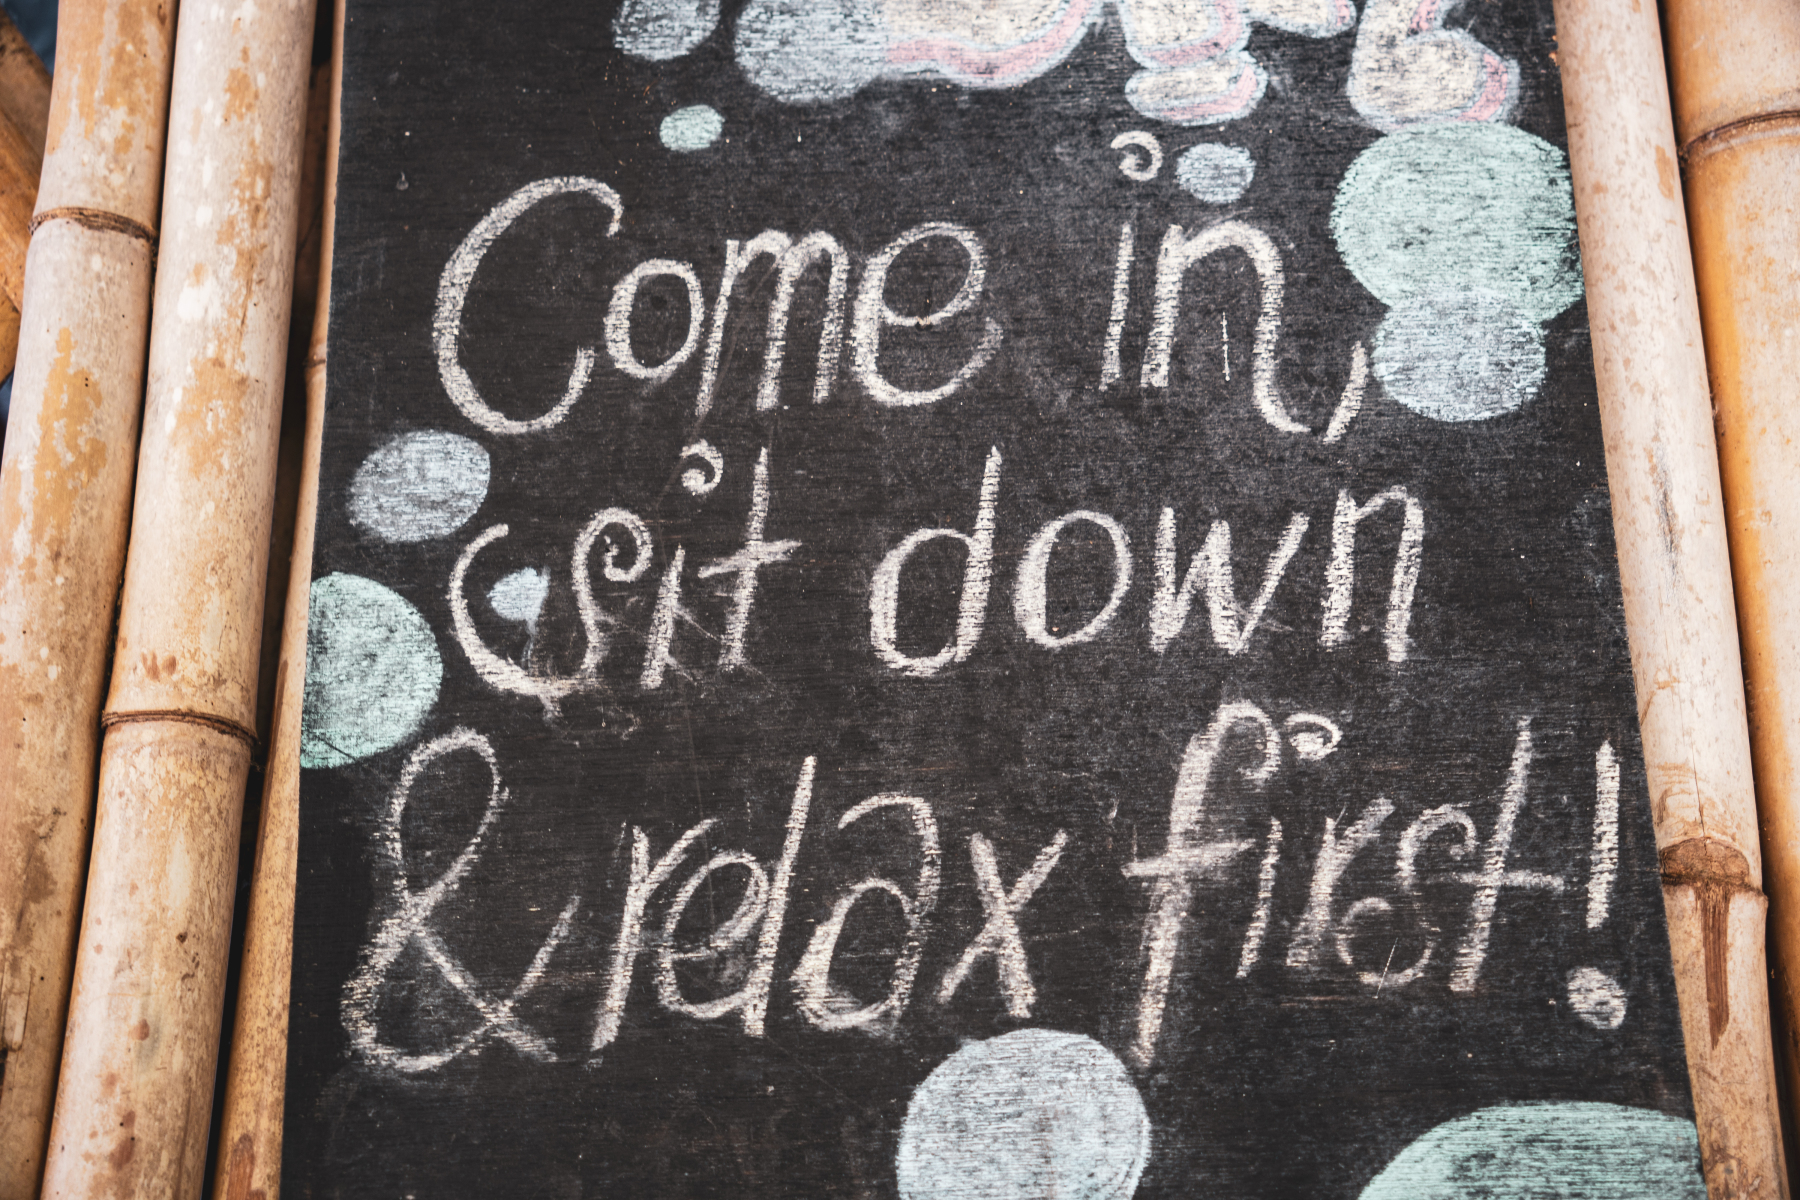 Come in,
sit down
& relax first!